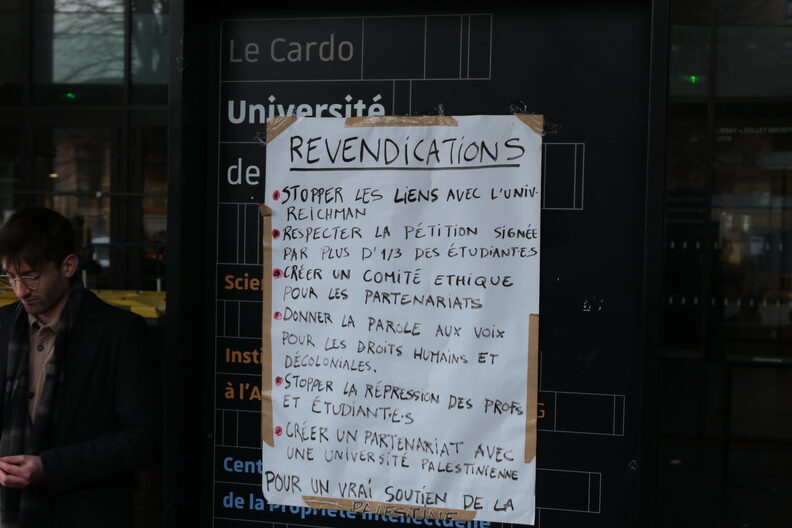 Le Cardo
Université
de
REVENDICATIONS
STOPPER LES LIENS AVEC L'UNIV-
REICHMAN
RESPECTER LA PÉTITION SIGNÉE
PAR PLUS D'1/3 DES ÉTUDIANTES
CRÉER UN COMITÉ ETHIQUE
POUR LES PARTENARIATS
DONNER LA PAROLE AUX VOIX
POUR LES DROITS HUMAINS ET
DÉCOLONIALES.
STOPPER LA RÉPRESSION DES PROFS
ET ÉTUDIANT·E·S
CRÉER UN PARTENARIAT AVEC
UNE UNIVERSITÉ PALESTINIENNE
POUR UN VRAI SOUTIEN DE LA
PALESTINE
Scien
Insti
à l'A
G
Cent
de la Propriété Intellectuelle